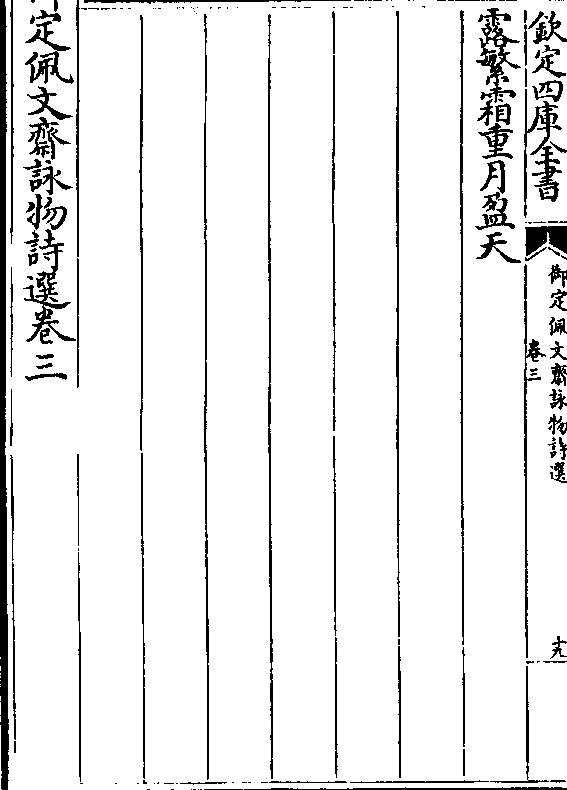 欽定四庫全書
御定佩文齋詠物詩選
卷三
十九
露繁霜重月盈天
御定佩文齋詠物詩選卷三